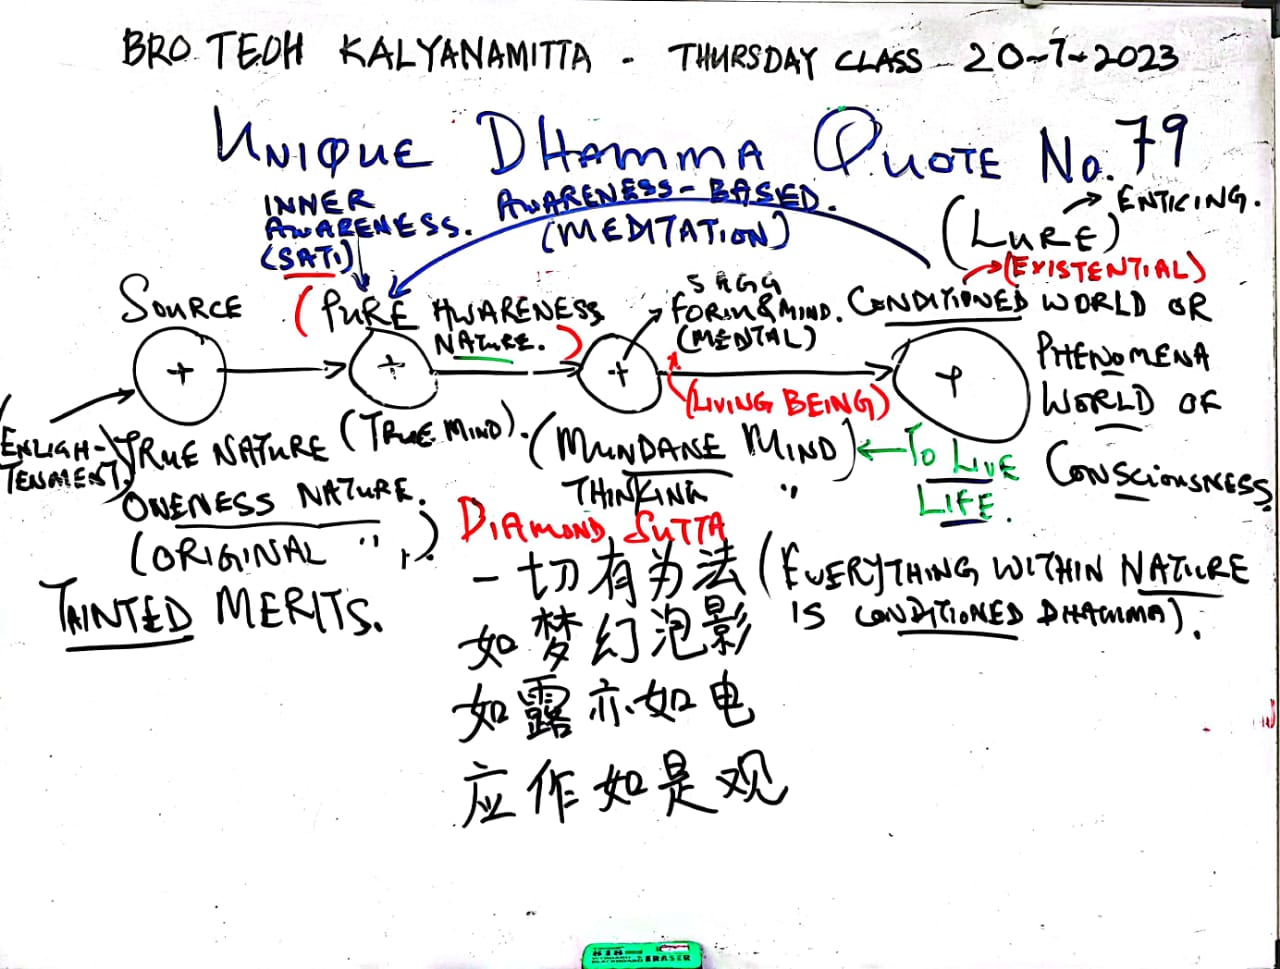 BRO TEOH KALYANAMITTA - THURSDAY CLASS - 20-7-2023
UNIQUE DHAMMA QUOTE No. 79
INNER
AWARENESS.
(SATI)
AWARENESS-BASED.
(MEDITATION)
(LURE)
ENTICING.
(EXISTENTIAL)
SOURCE
(PURE AWARENESS
NATURE.)
5 AGG
FORM & MIND.
(MENTAL)
CONDITIONED WORLD OR
PHENOMENA
WORLD OF
CONSCIOUSNESS.
+
+
+
+
(LIVING BEING)
ENLIGH-
TENMENT)
TRUE NATURE
ONENESS NATURE.
(ORIGINAL " ")
(TRUE MIND).
(MUNDANE MIND)
THINKING "
TO LIVE
LIFE.
TAINTED MERITS.
DIAMOND SUTTA
一切有为法 (EVERYTHING WITHIN NATURE
IS CONDITIONED DHAMMA).
如梦幻泡影
如露亦如电
应作如是观
ERASER